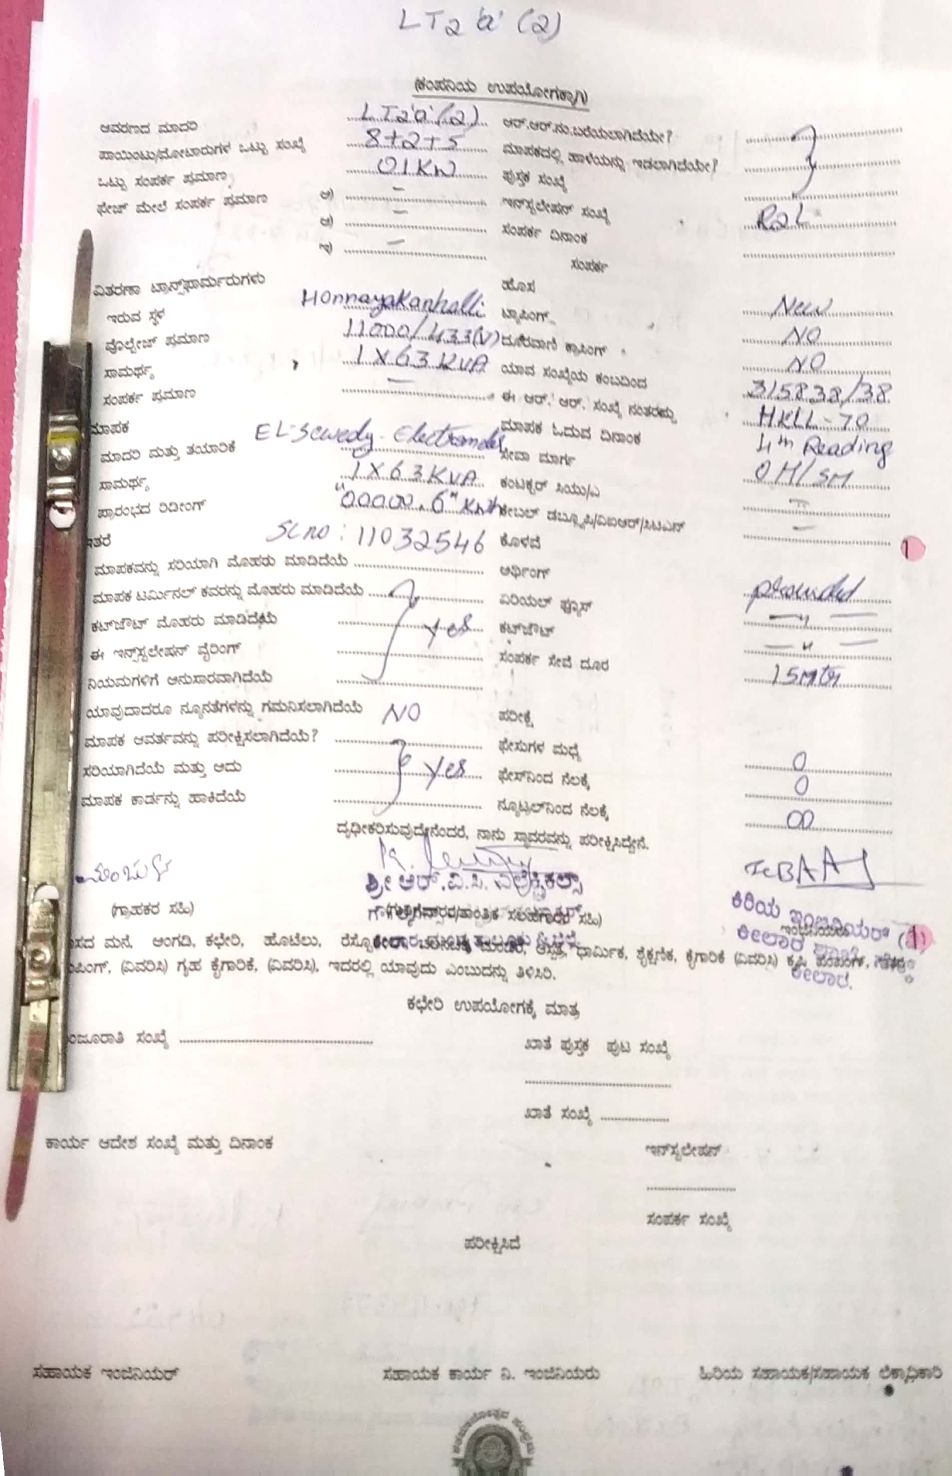 LT2 'a' (2)
(ಕಂಪನಿಯ ಉಪಯೋಗಕ್ಕಾಗಿ)
ಆವರಣದ ಮಾದರಿ LT2'a'(2) ಆರ್.ಆರ್.ನಂ.ಬರೆಯಲಾಗಿದೆಯೇ?
ಪಾಯಿಂಟು/ಮೋಟಾರುಗಳ ಒಟ್ಟು ಸಂಖ್ಯೆ 8+2+5 ಮಾಪಕದಲ್ಲಿ ಹಾಳೆಯನ್ನು ಇಡಲಾಗಿದೆಯೇ?
ಒಟ್ಟು ಸಂಪರ್ಕ ಪ್ರಮಾಣ 01KW ಪುಸ್ತಕ ಸಂಖ್ಯೆ
ಫೇಜ್ ಮೇಲೆ ಸಂಪರ್ಕ ಪ್ರಮಾಣ ಅ) – ಇನ್‌ಸ್ಟಲೇಷನ್ ಸಂಖ್ಯೆ
ಆ) – ಸಂಪರ್ಕ ದಿನಾಂಕ
ಇ) – ಸಂಪರ್ಕ
ವಿತರಣಾ ಟ್ರಾನ್ಸ್‌ಫಾರ್ಮರುಗಳು ಹೊಸ New
ಇರುವ ಸ್ಥಳ Honnayakanhalli ಟ್ಯಾಪಿಂಗ್ NO
ವೊಲ್ಟೇಜ್ ಪ್ರಮಾಣ 11000/433(V) ದೂರವಾಣಿ ಕ್ರಾಸಿಂಗ್ NO
ಸಾಮರ್ಥ್ಯ 1X63KVA ಯಾವ ಸಂಖ್ಯೆಯ ಕಂಬದಿಂದ 315838/38
ಸಂಪರ್ಕ ಪ್ರಮಾಣ – ಈ ಆರ್. ಆರ್. ಸಂಖ್ಯೆ ನಂತರದ್ದು HKLL-70
ಮಾಪಕ ಮಾಪಕ ಓದುವ ದಿನಾಂಕ 4th Reading
ಮಾದರಿ ಮತ್ತು ತಯಾರಿಕೆ EL-Sewedy ಸೇವಾ ಮಾರ್ಗ OH/SM
ಸಾಮರ್ಥ್ಯ 1X63KVA ಕಂಟಕ್ಟರ್ ಸಿಯು/ಎ
ಪ್ರಾರಂಭದ ರಿಡೀಂಗ್ "00000.6" Kwh ಕೇಬಲ್ ಡಬ್ಲ್ಯೂಪಿ/ವಿಐಆರ್/ಸಿಟಿಎಸ್ –
ಇತರೆ Sl no: 11032546 ಕೊಳವೆ
ಮಾಪಕವನ್ನು ಸರಿಯಾಗಿ ಮೊಹರು ಮಾಡಿದೆಯೆ ಅರ್ಥಿಂಗ್
ಮಾಪಕ ಟರ್ಮಿನಲ್ ಕವರನ್ನು ಮೊಹರು ಮಾಡಿದೆಯೆ ಏರಿಯಲ್ ಫ್ಯೂಸ್ provided
ಕಟ್‌ಔಟ್ ಮೊಹರು ಮಾಡಿದೆಯೆ yes ಕಟ್‌ಔಟ್ — " —
ಈ ಇನ್‌ಸ್ಟಲೇಷನ್ ವೈರಿಂಗ್ ಸಂಪರ್ಕ ಸೇವೆ ದೂರ — " —
ನಿಯಮಗಳಿಗೆ ಅನುಸಾರವಾಗಿದೆಯೆ 15Mtr
ಯಾವುದಾದರೂ ನ್ಯೂನತೆಗಳನ್ನು ಗಮನಿಸಲಾಗಿದೆಯೆ NO ಪರೀಕ್ಷೆ
ಮಾಪಕ ಆವರ್ತವನ್ನು ಪರೀಕ್ಷಿಸಲಾಗಿದೆಯೆ? ಫೇಸುಗಳ ಮಧ್ಯೆ 0
ಸರಿಯಾಗಿದೆಯೆ ಮತ್ತು ಅದು yes ಫೇಸ್‌ನಿಂದ ನೆಲಕ್ಕೆ 0
ಮಾಪಕ ಕಾರ್ಡನ್ನು ಹಾಕಿದೆಯೆ ನ್ಯೂಟ್ರಲ್‌ನಿಂದ ನೆಲಕ್ಕೆ 00
ದೃಢೀಕರಿಸುವುದೇನೆಂದರೆ, ನಾನು ಸ್ಥಾವರವನ್ನು ಪರೀಕ್ಷಿಸಿದ್ದೇನೆ.
ಶ್ರೀ ಆರ್.ವಿ.ಸಿ. ಎಲೆಕ್ಟ್ರಿಕಲ್ಸ್
(ಗ್ರಾಹಕರ ಸಹಿ) ಸಲಹೆಗಾರರ ಸಹಿ) ಕಿರಿಯ ಇಂಜಿನಿಯರ್
ಮನೆ, ಅಂಗಡಿ, ಕಛೇರಿ, ಹೊಟೆಲು, ಆಸ್ಪತ್ರೆ, ಧಾರ್ಮಿಕ, ಶೈಕ್ಷಣಿಕ, ಕೈಗಾರಿಕೆ (ವಿವರಿಸಿ) ಕೃಷಿ ಕೀಲಾರ ಶಾಖೆ
(ವಿವರಿಸಿ) ಗೃಹ ಕೈಗಾರಿಕೆ, (ವಿವರಿಸಿ), ಇದರಲ್ಲಿ ಯಾವುದು ಎಂಬುದನ್ನು ತಿಳಿಸಿರಿ. ಕೀಲಾರ.
ಕಛೇರಿ ಉಪಯೋಗಕ್ಕೆ ಮಾತ್ರ
ಮಂಜೂರಾತಿ ಸಂಖ್ಯೆ ಖಾತೆ ಪುಸ್ತಕ ಪುಟ ಸಂಖ್ಯೆ
ಖಾತೆ ಸಂಖ್ಯೆ
ಕಾರ್ಯ ಆದೇಶ ಸಂಖ್ಯೆ ಮತ್ತು ದಿನಾಂಕ ಇನ್‌ಸ್ಟಲೇಷನ್
ಸಂಪರ್ಕ ಸಂಖ್ಯೆ
ಪರೀಕ್ಷಿಸಿದೆ
ಸಹಾಯಕ ಇಂಜಿನಿಯರ್ ಸಹಾಯಕ ಕಾರ್ಯ ನಿ. ಇಂಜಿನಿಯರು ಹಿರಿಯ ಸಹಾಯಕ/ಸಹಾಯಕ ಲೆಕ್ಕಾಧಿಕಾರಿ